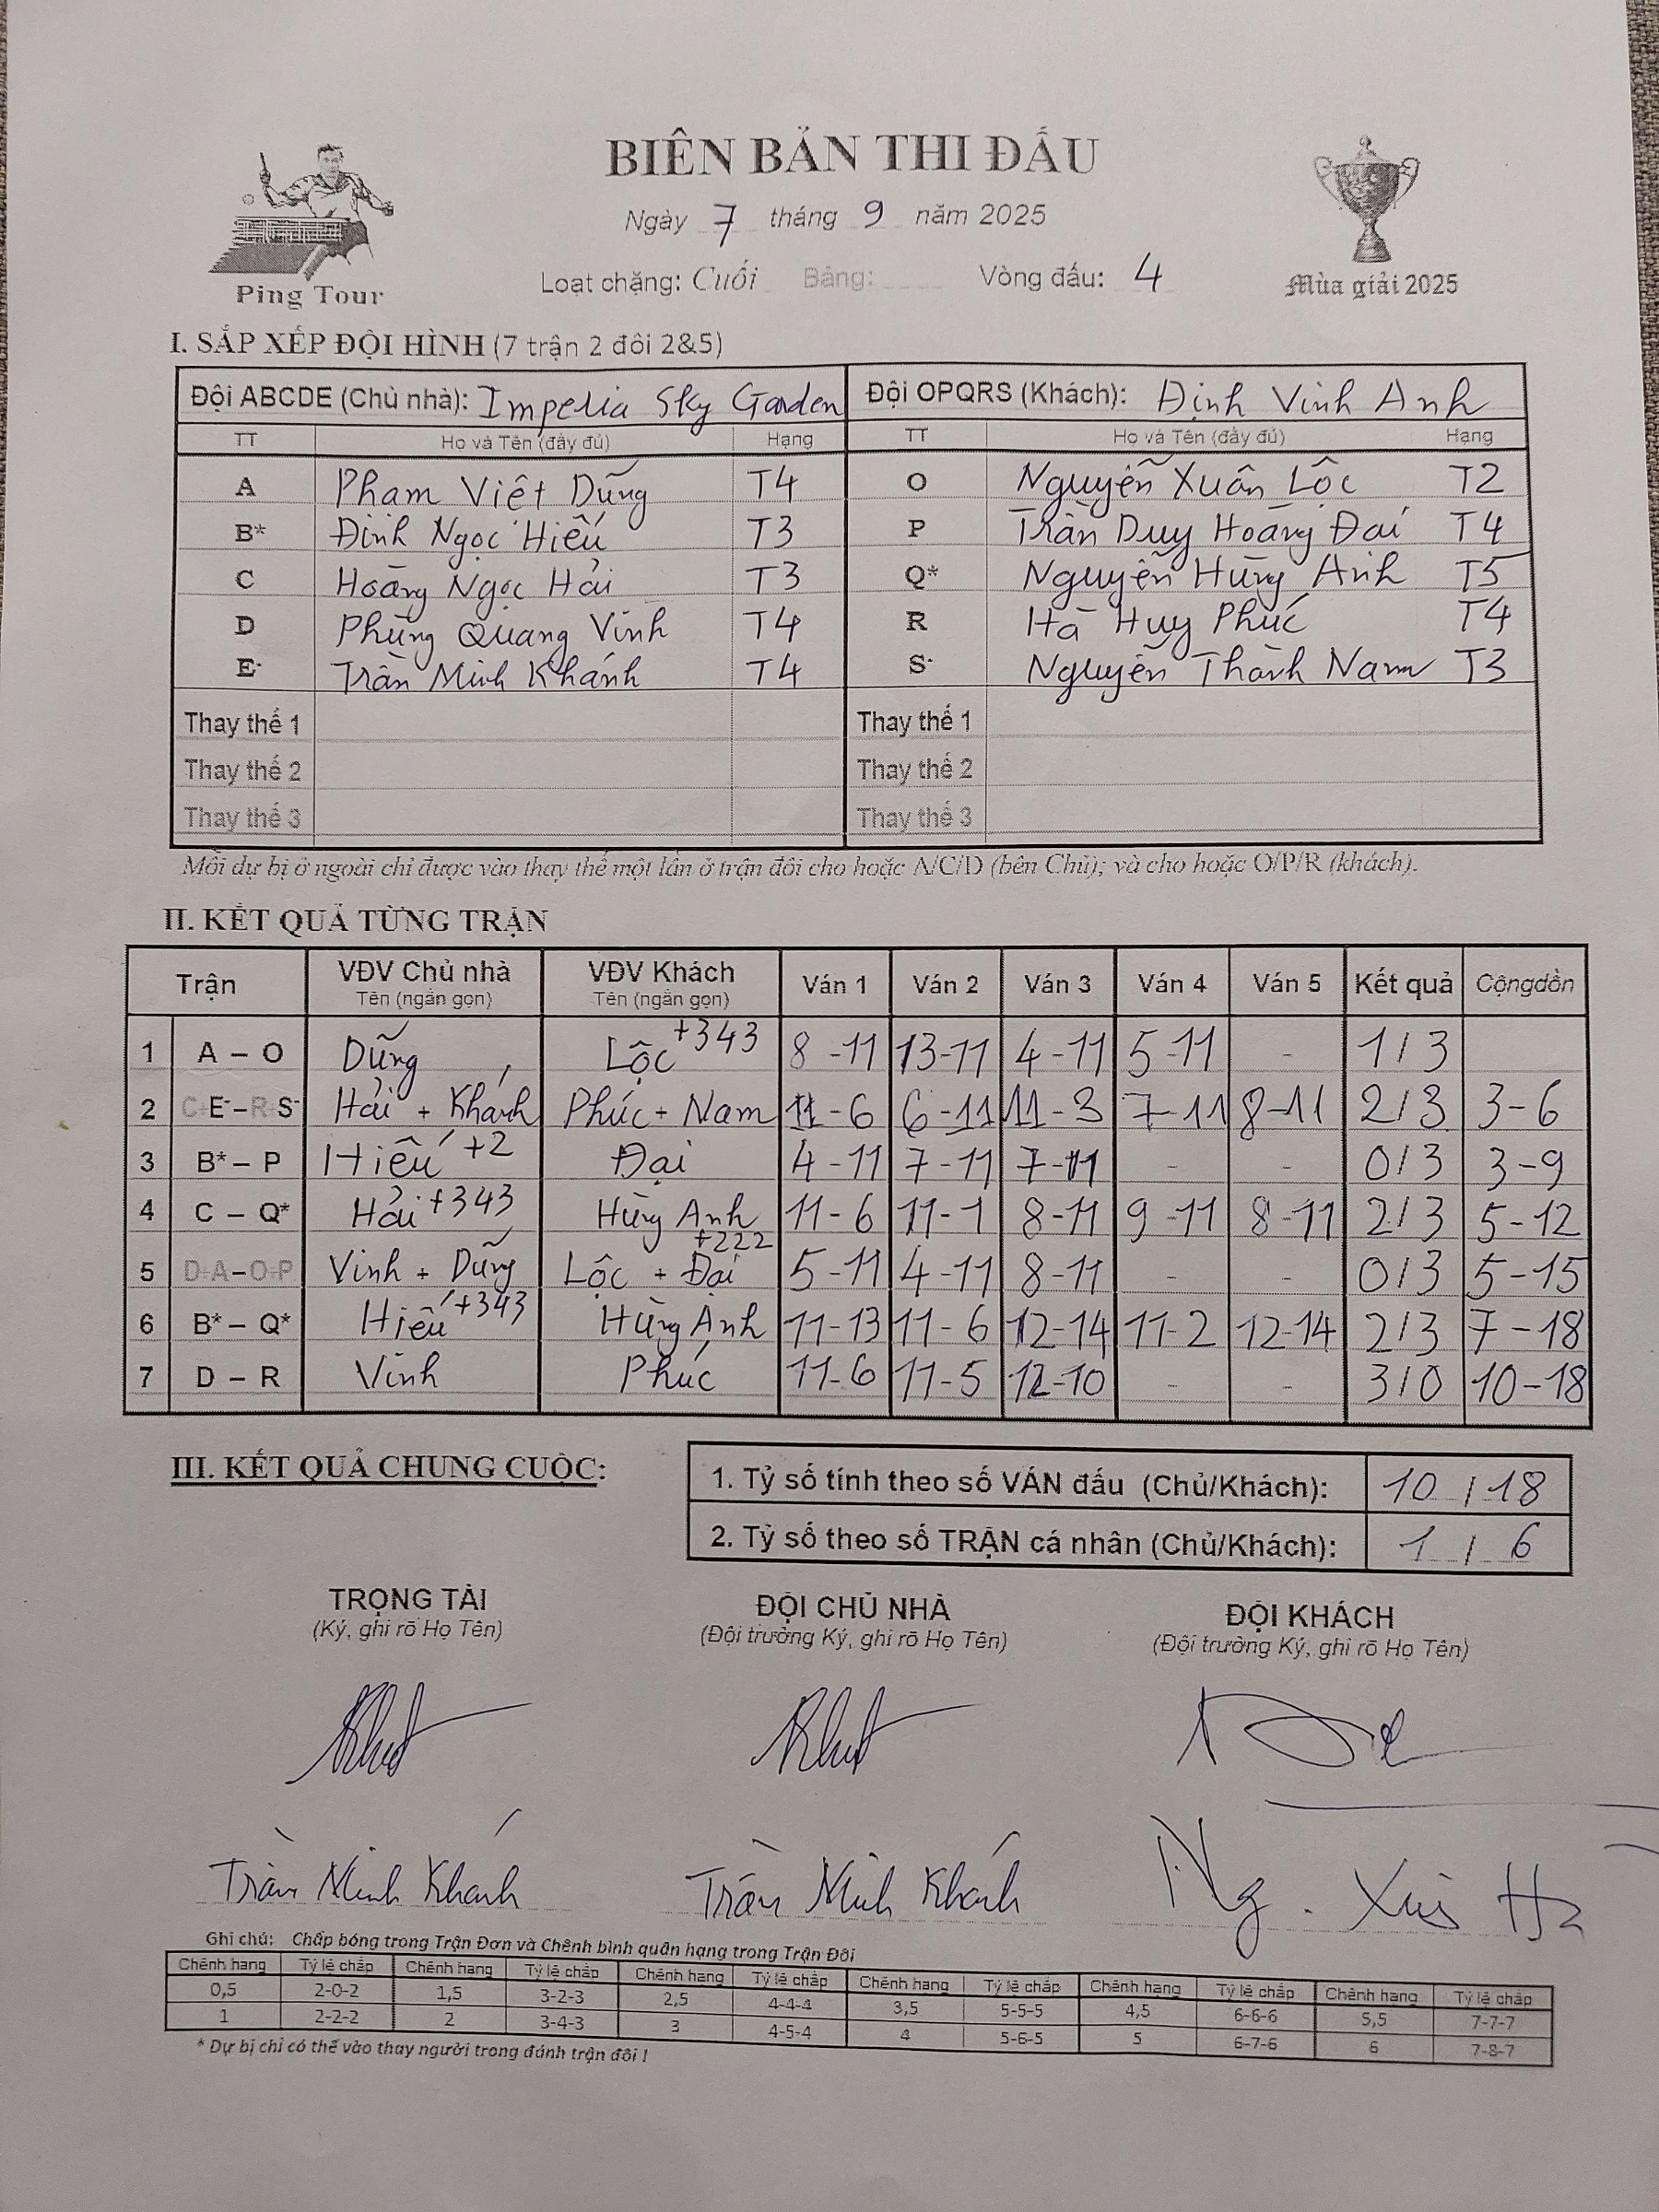 BIÊN BẢN THI ĐẤU
Ngày 7 tháng 9 năm 2025
Loạt chặng: Cuối Bảng: Vòng đấu: 4
Ping Tour
Mùa giải 2025
I. SẮP XẾP ĐỘI HÌNH (7 trận 2 đôi 2&5)
Đội ABCDE (Chủ nhà): Imperia Sky Garden Đội OPQRS (Khách): Định Vinh Anh
TT Họ và Tên (đầy đủ) Hạng TT Họ và Tên (đầy đủ) Hạng
A Phạm Việt Dũng T4 O Nguyễn Xuân Lộc T2
B* Đinh Ngọc Hiếu T3 P Trần Duy Hoàng Đại T4
C Hoàng Ngọc Hải T3 Q* Nguyễn Hùng Anh T5
D Phùng Quang Vinh T4 R Hà Huy Phúc T4
E- Trần Minh Khánh T4 S- Nguyễn Thành Nam T3
Thay thế 1 Thay thế 1
Thay thế 2 Thay thế 2
Thay thế 3 Thay thế 3
Mỗi dự bị ở ngoài chỉ được vào thay thế một lần ở trận đôi cho hoặc A/C/D (bên Chủ); và cho hoặc O/P/R (khách).
II. KẾT QUẢ TỪNG TRẬN
Trận VĐV Chủ nhà VĐV Khách Ván 1 Ván 2 Ván 3 Ván 4 Ván 5 Kết quả Cộng dồn
Tên (ngắn gọn) Tên (ngắn gọn)
1 A – O Dũng Lộc +343 8-11 13-11 4-11 5-11 - 1/3
2 C+E-–R+S- Hải + Khánh Phúc + Nam 11-6 6-11 11-3 7-11 8-11 2/3 3-6
3 B* – P Hiếu +2 Đại 4-11 7-11 7-11 - - 0/3 3-9
4 C – Q* Hải +343 Hùng Anh 11-6 11-1 8-11 9-11 8-11 2/3 5-12
5 D+A–O+P Vinh + Dũng Lộc + Đại +222 5-11 4-11 8-11 - - 0/3 5-15
6 B* – Q* Hiếu +343 Hùng Anh 11-13 11-6 12-14 11-2 12-14 2/3 7-18
7 D – R Vinh Phúc 11-6 11-5 12-10 - - 3/0 10-18
III. KẾT QUẢ CHUNG CUỘC:
1. Tỷ số tính theo số VÁN đấu (Chủ/Khách): 10 / 18
2. Tỷ số theo số TRẬN cá nhân (Chủ/Khách): 1 / 6
TRỌNG TÀI ĐỘI CHỦ NHÀ ĐỘI KHÁCH
(Ký, ghi rõ Họ Tên) (Đội trưởng Ký, ghi rõ Họ Tên) (Đội trưởng Ký, ghi rõ Họ Tên)
Trần Minh Khánh Trần Minh Khánh Ng.
Ghi chú: Chấp bóng trong Trận Đơn và Chênh bình quân hạng trong Trận Đôi
Chênh hạng Tỷ lệ chấp Chênh hạng Tỷ lệ chấp Chênh hạng Tỷ lệ chấp Chênh hạng Tỷ lệ chấp Chênh hạng Tỷ lệ chấp Chênh hạng Tỷ lệ chấp
0,5 2-0-2 1,5 3-2-3 2,5 4-4-4 3,5 5-5-5 4,5 6-6-6 5,5 7-7-7
1 2-2-2 2 3-4-3 3 4-5-4 4 5-6-5 5 6-7-6 6 7-8-7
* Dự bị chỉ có thể vào thay người trong đánh trận đôi !